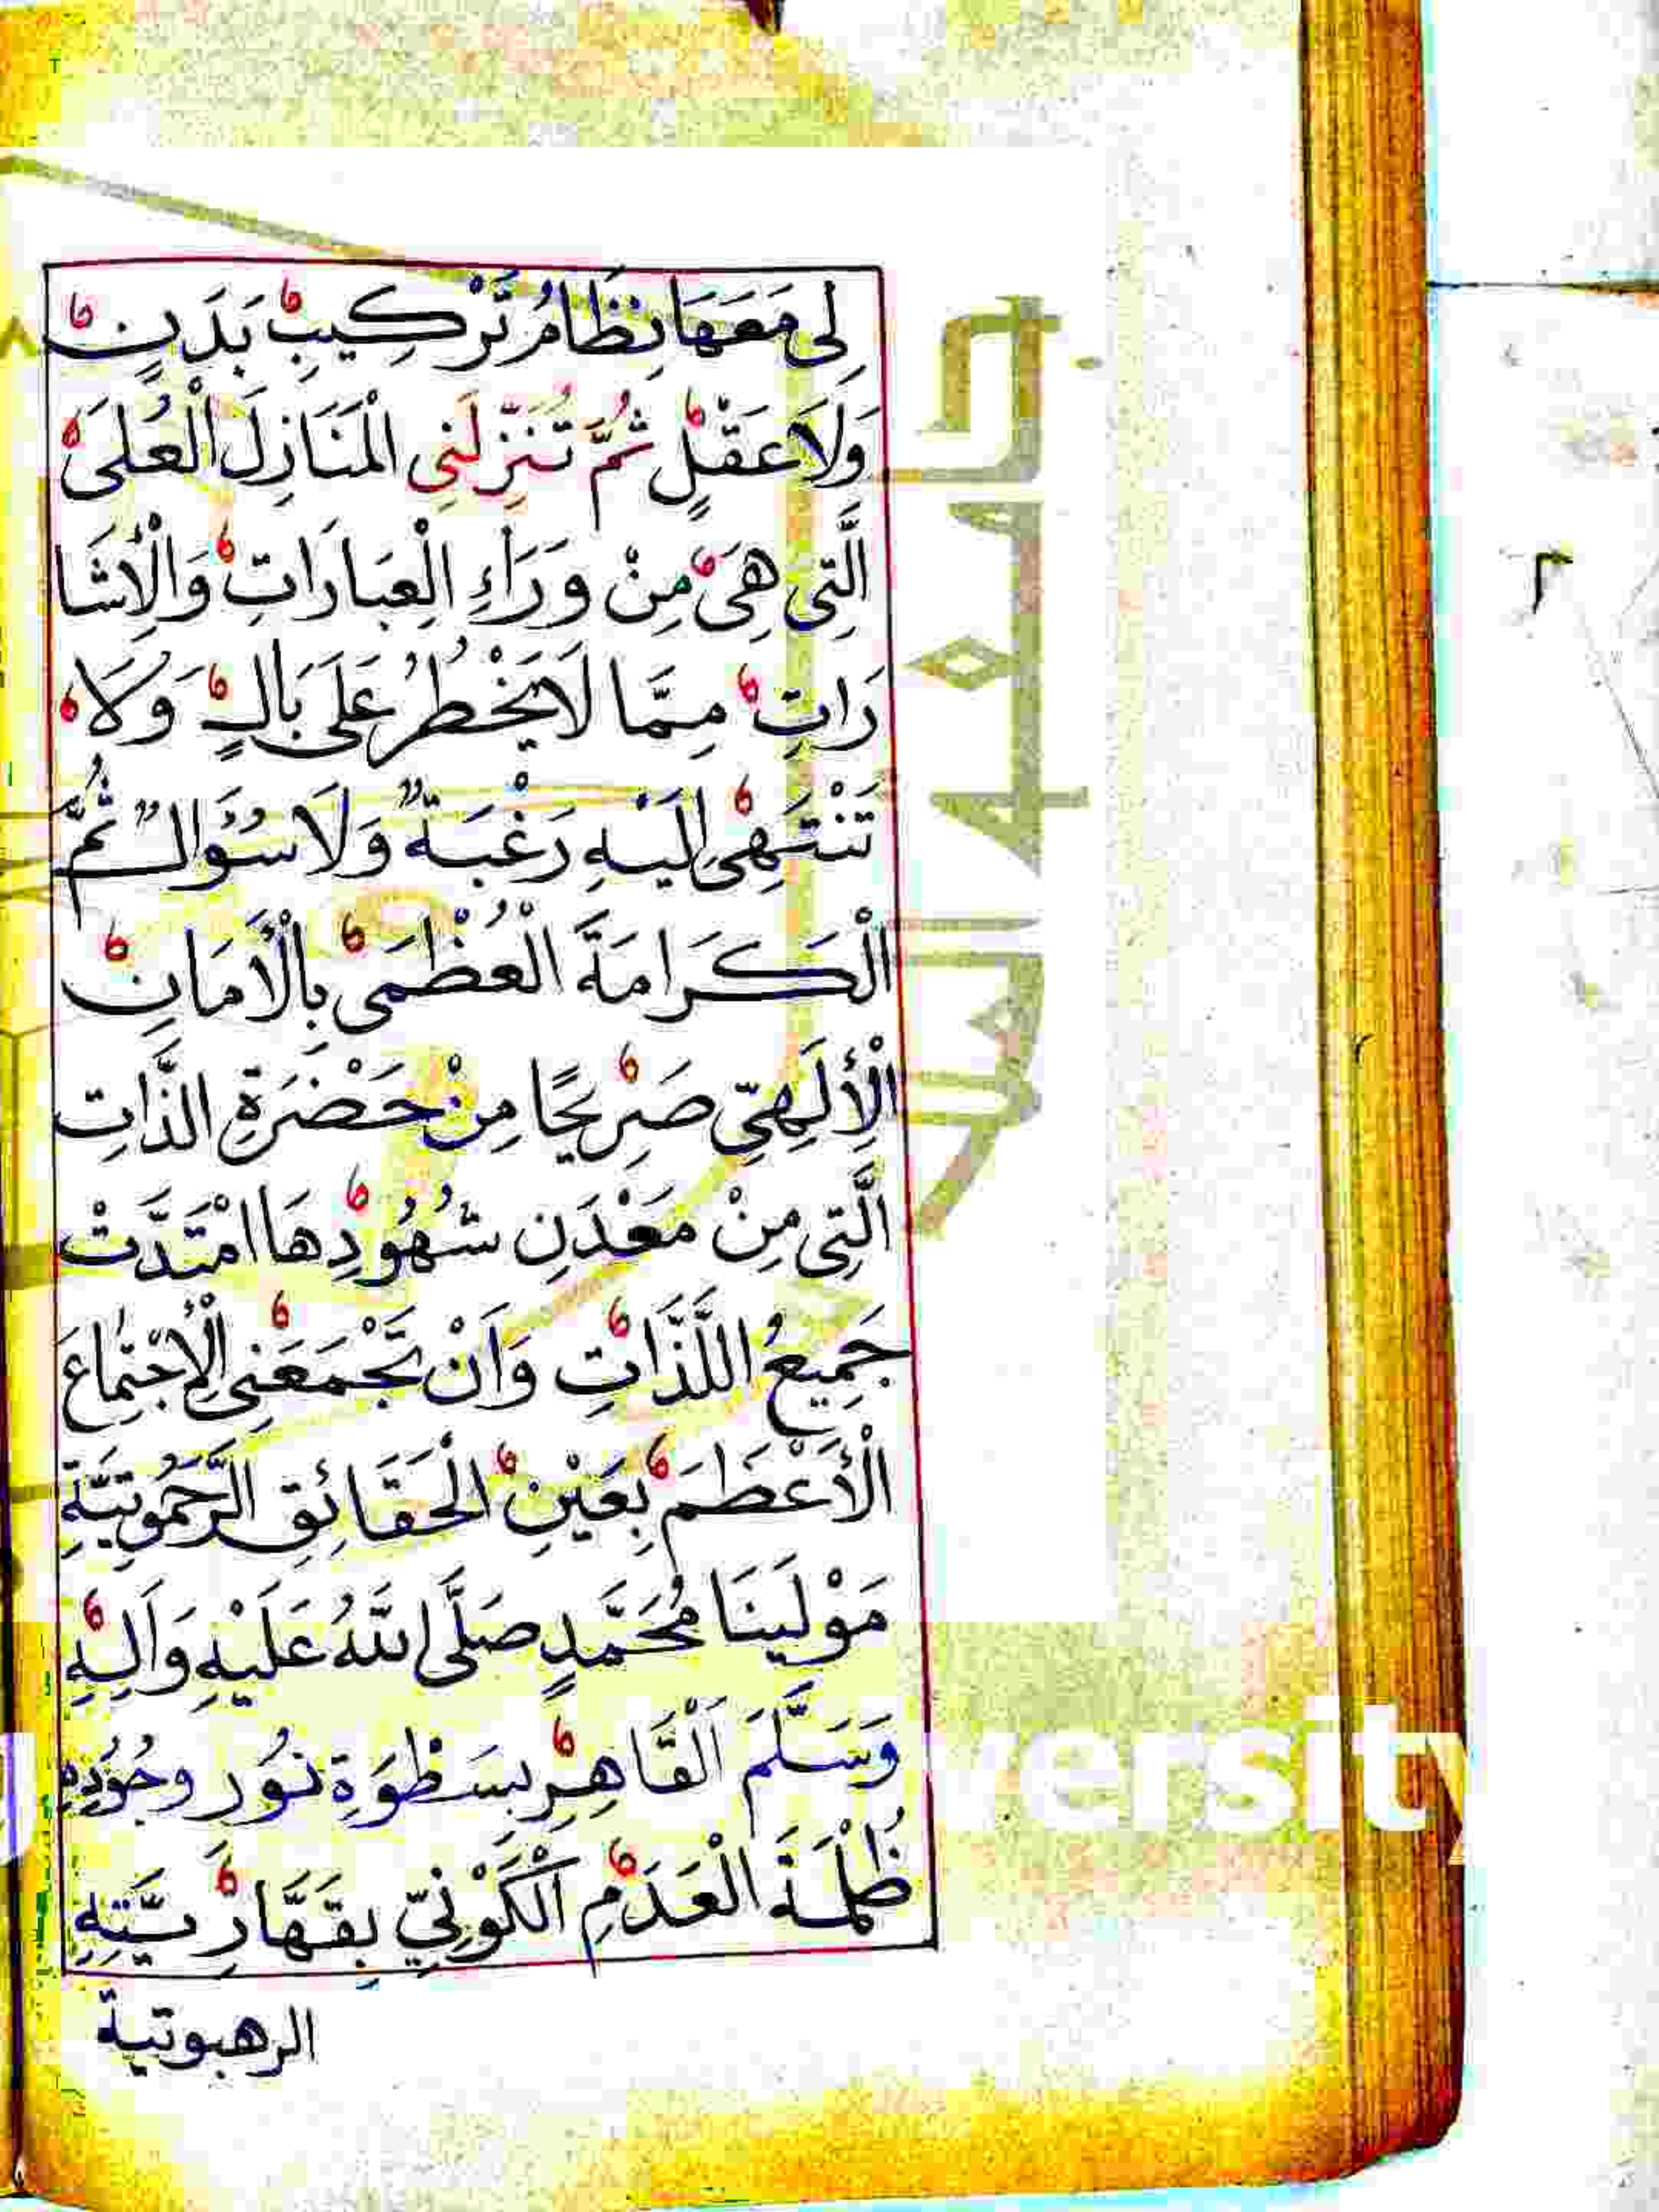 لِى مَعَهَا نِظَامُ تَرْكِيبِ بَدَنٍ
وَلَا عَقْلٍ ثُمَّ تُنَزِّلَنِي الْمَنَازِلَ الْعُلَىٰ
الَّتِى هِىَ مِنْ وَرَاءِ الْعِبَارَاتِ وَالْاِشَا
رَاتِ مِمَّا لَا يَخْطُرُ عَلَى بَالٍ وَلَا
تَنْتَهِى اِلَيْهِ رَغْبَةٌ وَلَا سُؤَالٌ ثُمَّ
الْكَرَامَةَ الْعُظْمَى بِالْأَمَانِ
الْاِلَهِىِّ صَرِيحًا مِنْ حَضْرَةِ الذَّاتِ
الَّتِى مِنْ مَعْدَنِ شُهُودِهَا امْتَدَّتْ
جَمِيعُ اللَّذَّاتِ وَاَنْ تَجْمَعَنِى الْاِجْتِمَاعَ
الْأَعْظَمَ بِعَيْنِ الْحَقَائِقِ الرَّحَمُوتِيَّةِ
مَوْلَينَا مُحَمَّدٍ صَلَّى اللَّهُ عَلَيْهِ وَاَلِهِ
وَسَلَّمَ اَلْقَاهِرِ بِسَطْوَةِ نُورِ وُجُودِهِ
ظُلْمَةَ الْعَدَمِ الْكَوْنِيِّ بِقَهَّارِيَّتِهِ
الرهبوتية
University